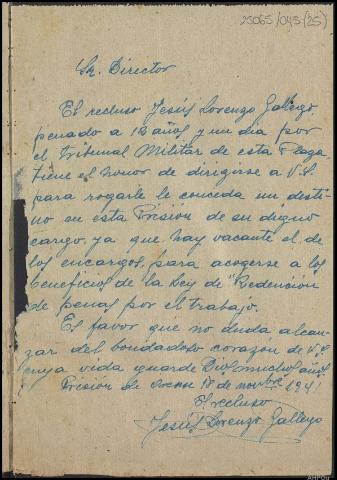 25065/045 (25)
Sr. Director
El recluso Jesús Lorenzo Gallego
penado a 12 años y un dia por
el Tribunal Militar de esta Plaza,
tiene el honor de dirigirse a V.S.
para rogarle le conceda un desti-
no en esta Prision de su digno
cargo, ya que hay vacante el de
los encargos, para acogerse a los
beneficios de la Ley de "Redención
de penas por el trabajo.
Es favor que no duda alcan-
zar del bondadoso corazón de V.S.
cuya vida guarde Dios muchos años.
Prision de 17 de novbre 1941
El recluso
Jesús Lorenzo Gallego
AHPOu